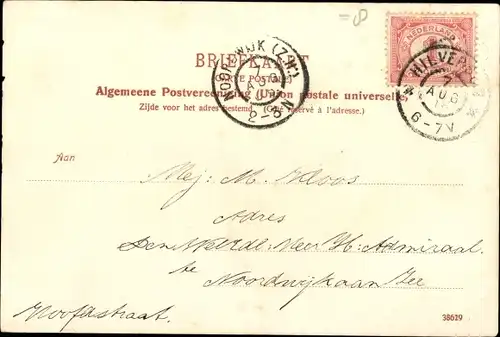 =8
BRIEFKAART
CARTE POSTALE
Algemeene Postvereeniging (Union postale universelle)
Zijde voor het adres bestemd. (Côté réservé à l'adresse.)
NEDERLAND
NOORDWIJK (Z.H.)
2-3N
HILVERSUM
AUG
6-7V
Aan
Mej: M. Kloos
Adres
Den WelEd: Heer H: Admiraal
te
Noordwijk aan Zee
Hoofdstraat.
38629